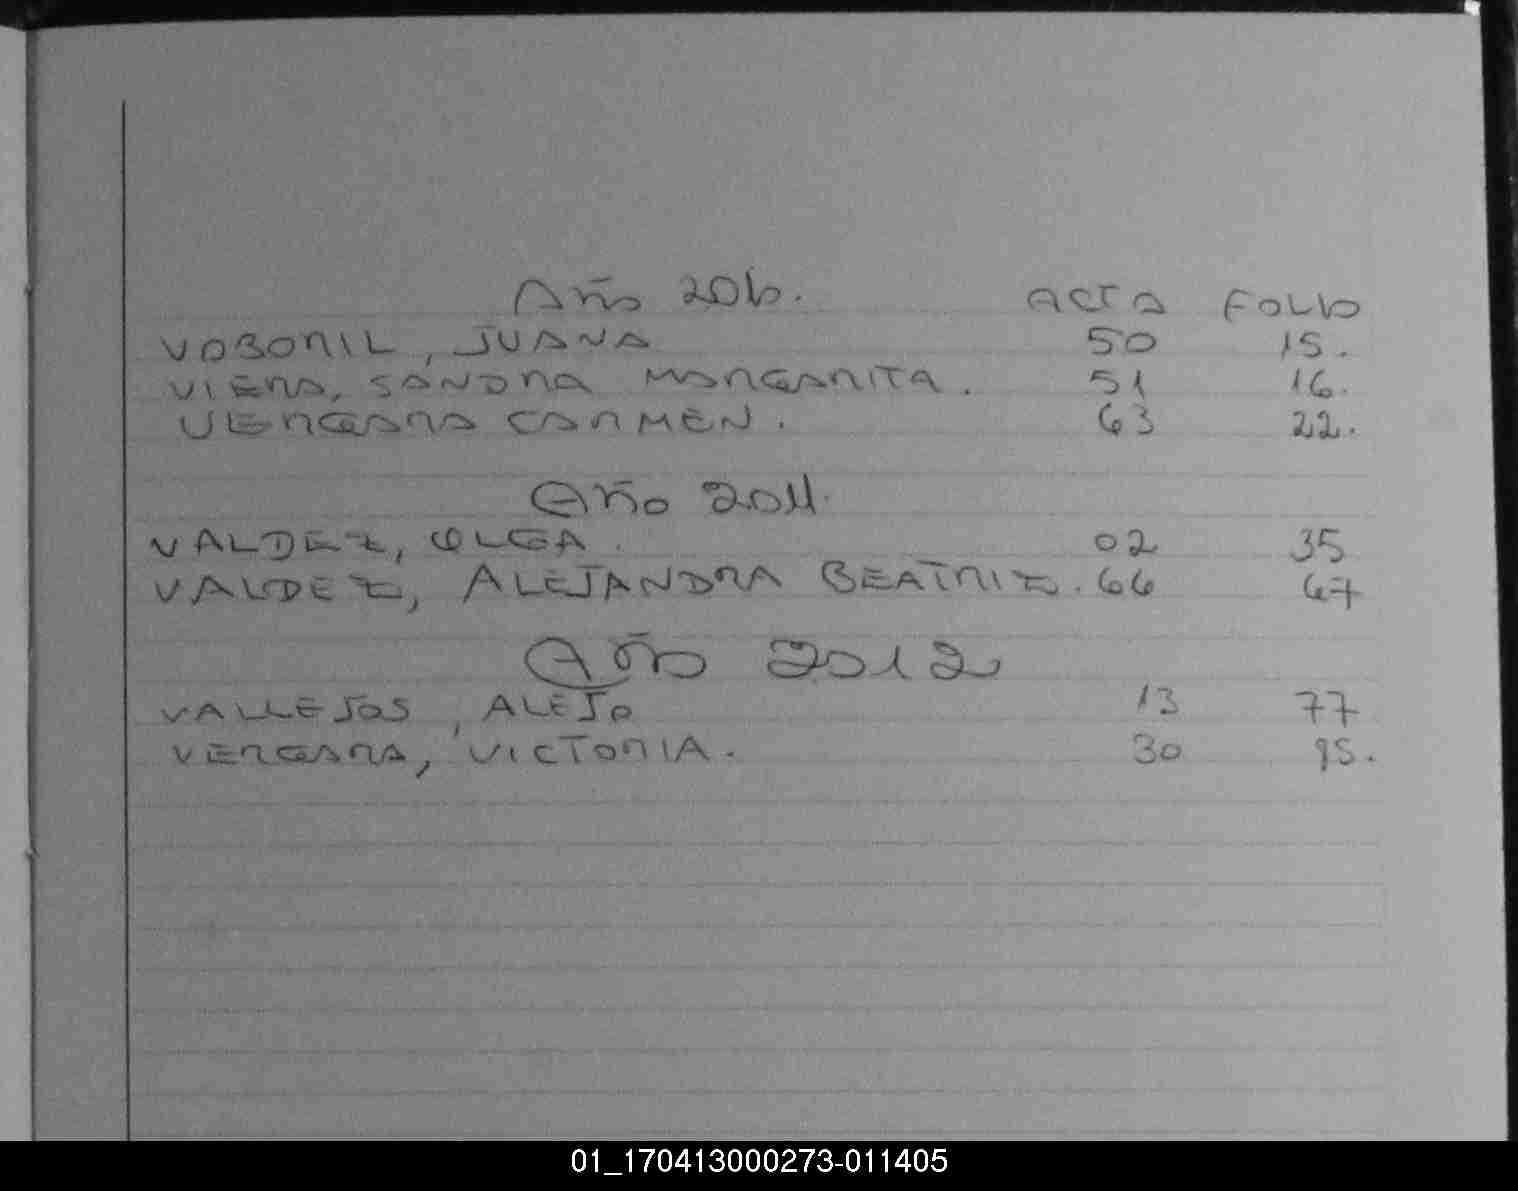 Año 2010. ACTA FOLIO
VOBORIL, JUANA 50 15.
VIERA, SANDRA MARGARITA. 51 16.
VERGARA CARMEN. 63 22.
Año 2011.
VALDEZ, OLGA. 02 35
VALDEZ, ALEJANDRA BEATRIZ. 66 67
Año 2012
VALLEJOS, ALEJO 13 77
VERGARA, VICTORIA. 30 95.
01_170413000273-011405